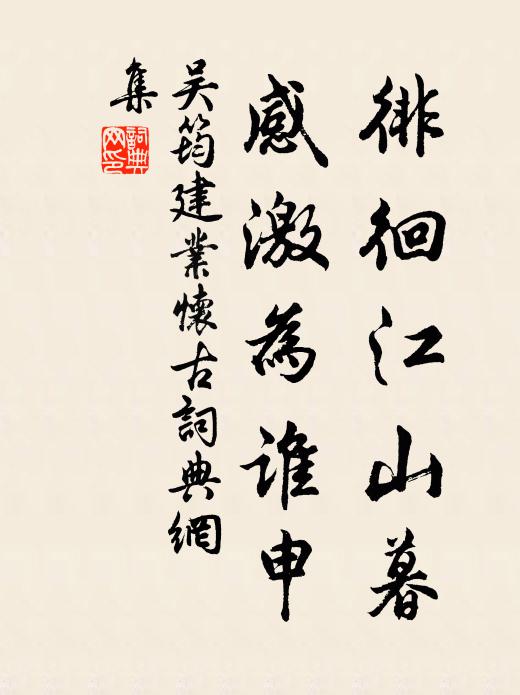 徘徊江山暮
感激為誰申
吳筠建業懷古詞典網
集
詞典
网印